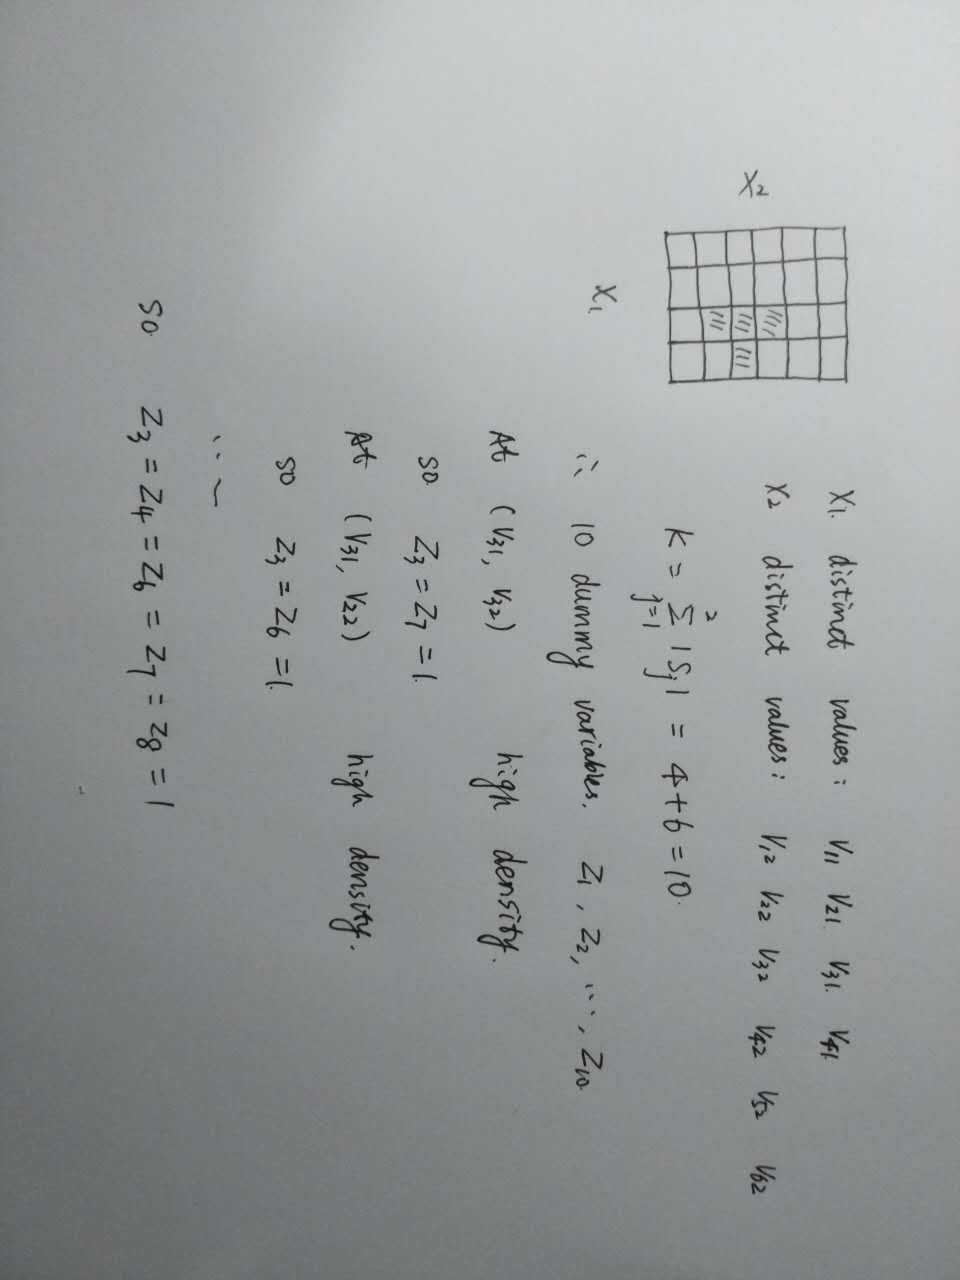 X₁ distinct values: V₁₁ V₂₁ V₃₁. V₄₁
X₂ distinct values: V₁₂ V₂₂ V₃₂ V₄₂ V₅₂ V₆₂
X₂
X₁
K = Σ_{j=1}^{2} |Sj| = 4+6=10.
∴ 10 dummy variables. Z₁, Z₂, ..., Z₁₀
At (V₃₁, V₃₂) high density.
so Z₃ = Z₇ = 1.
At (V₃₁, V₂₂) high density.
so Z₃ = Z₆ = 1.
so Z₃ = Z₄ = Z₆ = Z₇ = Z₈ = 1